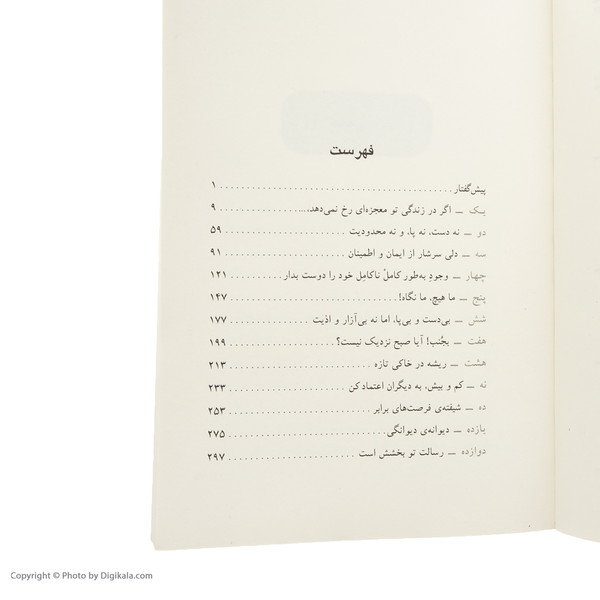 فهرست
پیش‌گفتار ........................................ ۱
یک ــ اگر در زندگی تو معجزه‌ای رخ نمی‌دهد،.... ............... ۹
دو ــ نه دست، نه پا، و نه محدودیت ........................ ۵۹
سه ــ دلی سرشار از ایمان و اطمینان ........................ ۹۱
چهار ــ وجودِ به‌طور کاملْ ناکاملِ خود را دوست بدار .......... ۱۲۱
پنج ــ ما هیچ، ما نگاه! .............................. ۱۴۷
شش ــ بی‌دست و بی‌پا، اما نه بی‌آزار و اذیت .............. ۱۷۷
هفت ــ بجُنب! آیا صبح نزدیک نیست؟ .................... ۱۹۹
هشت ــ ریشه در خاکی تازه .......................... ۲۱۳
نه ــ کم و بیش، به دیگران اعتماد کن .................... ۲۳۳
ده ــ شیفته‌ی فرصت‌های برابر .......................... ۲۵۳
یازده ــ دیوانه‌ی دیوانگی ............................ ۲۷۵
دوازده ــ رسالت تو بخشش است ........................ ۲۹۷
Copyright © Photo by Digikala.com